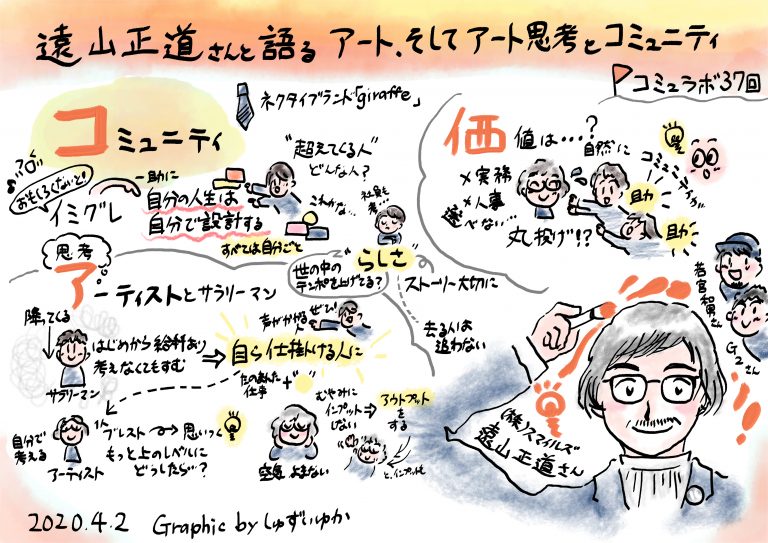 遠山正道さんと語る アート、そしてアート思考とコミュニティ
コミュラボ37回
ネクタイブランド「giraffe」
コミュニティ
"超えてくる人"
どんな人?
おもしろくないと!
イミグレ
一助に
自分の人生は
自分で設計する
すべては自分ごと
これかな…
社員も
考…
価値は…?
自然に
コミュニティが
×実務
×人事
選べない…
助か
助か
丸投げ!?
思考
アーティストとサラリーマン
世の中の
テンポを上げてる?
"らしさ"
ストーリー大切に
去る人は
追わない
若宮和男さん
G2さん
降ってくる
はじめから給料あり
考えなくともすむ
サラリーマン
声がかかる
ぜひ!
自ら仕掛ける人に
たのまれた
仕事
自分で
考える
アーティスト
1人ブレスト
思いつく
もっと上のレベルに
どうしたら…?
空気よまない
むやみに
インプット
しない
アウトプット
をする
と、インプットも
(株)スマイルズ
遠山正道さん
2020.4.2 Graphic by しゅずいゆか